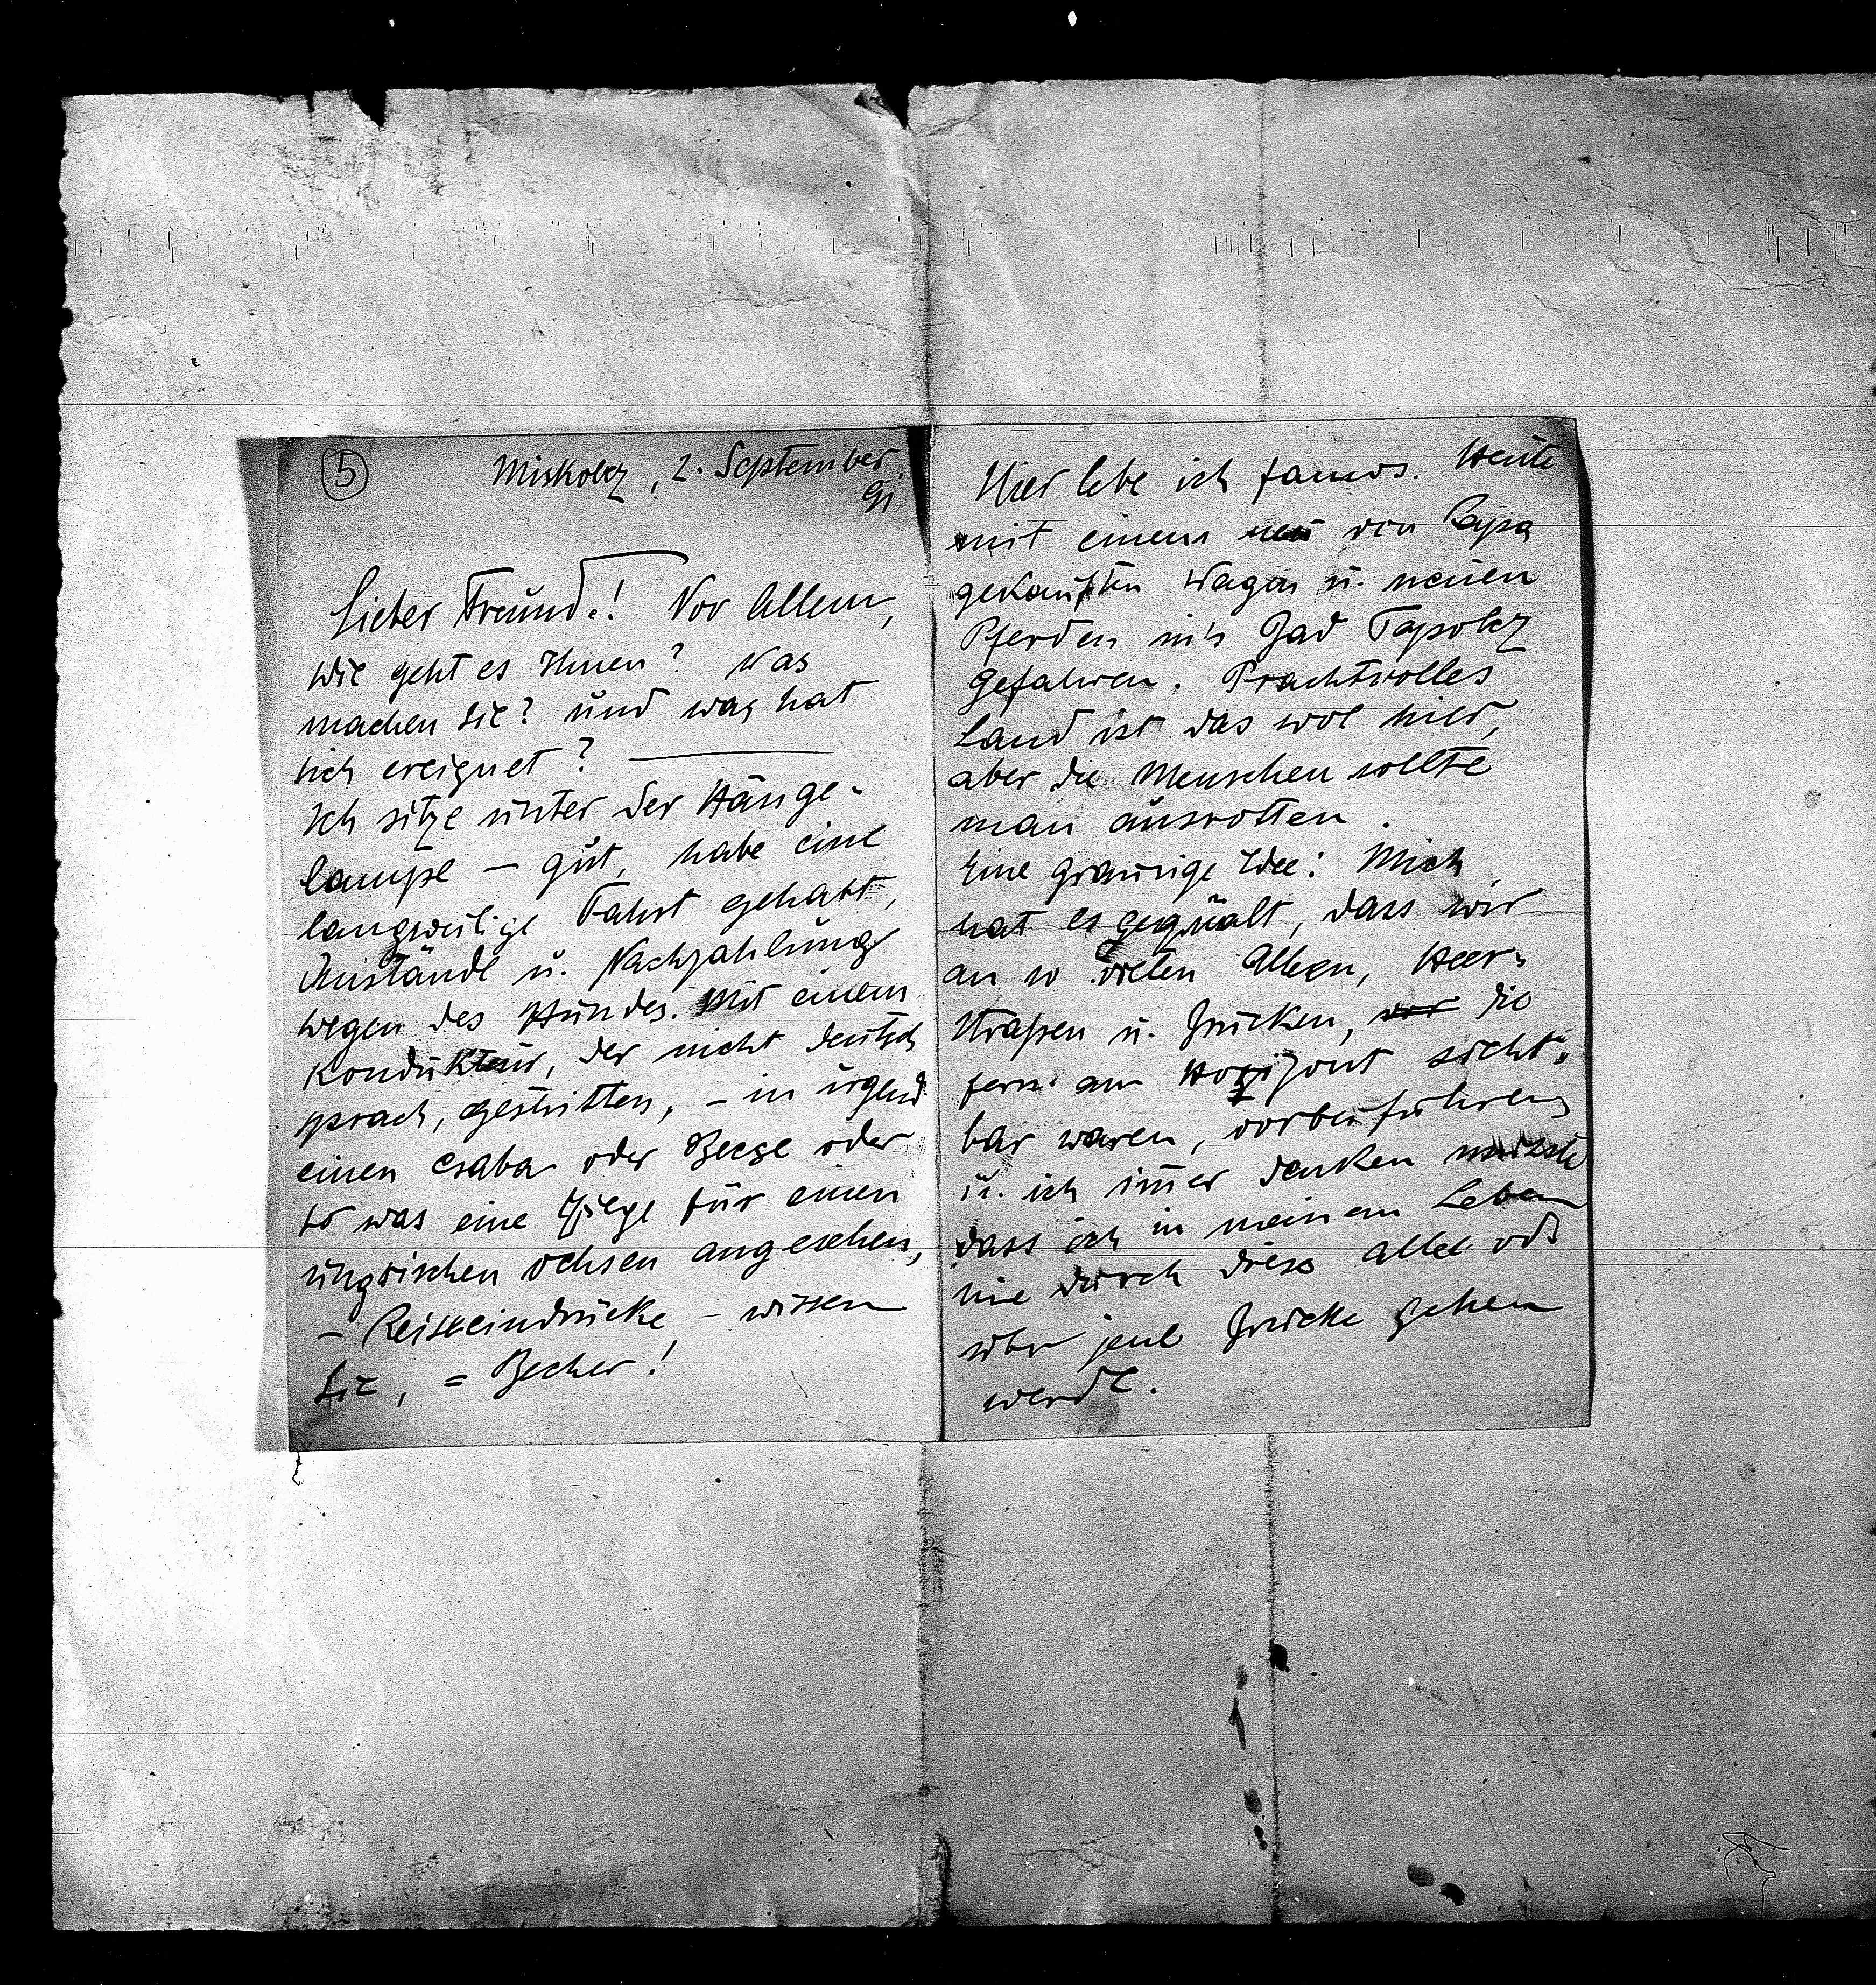 5
Miskolcz, 2. September.
91
Lieber Freund! Vor Allem,
wie geht es Ihnen? Was
machen Sie? und was hat
sich ereignet? —
Ich sitze unter der Hänge-
lampe – gut, habe eine
langweilige Fahrt gehabt,
Umstände u. Nachzahlung
wegen des Hundes. Mit einem
Kondukteur, der nicht deutsch
sprach, gestritten, – in irgend
einen Csaba oder Becse oder
so was eine Ziege für einen
ungrischen Ochsen angesehen,
– Reiseeindrücke – wissen
Sie, = Becher!
Hier lebe ich famos. Heute
mit einem neu von Papa
gekauften Wagen u. neuen
Pferden in's Bad Tapolcz
gefahren. Prachtvolles
Land ist das wol hier,
aber die Menschen sollte
man ausrotten.
Eine grausige Idee: Mich
hat es gequält, dass wir
an so vielen Alleen, Heer-
straßen u. Brücken, die
fern am Horizont sicht-
bar waren, vorbeiführen
u. ich im̄er denken musste
dass ich in meinem Leben
nie durch diese Allee od.
über jene Brücke gehen
werde.